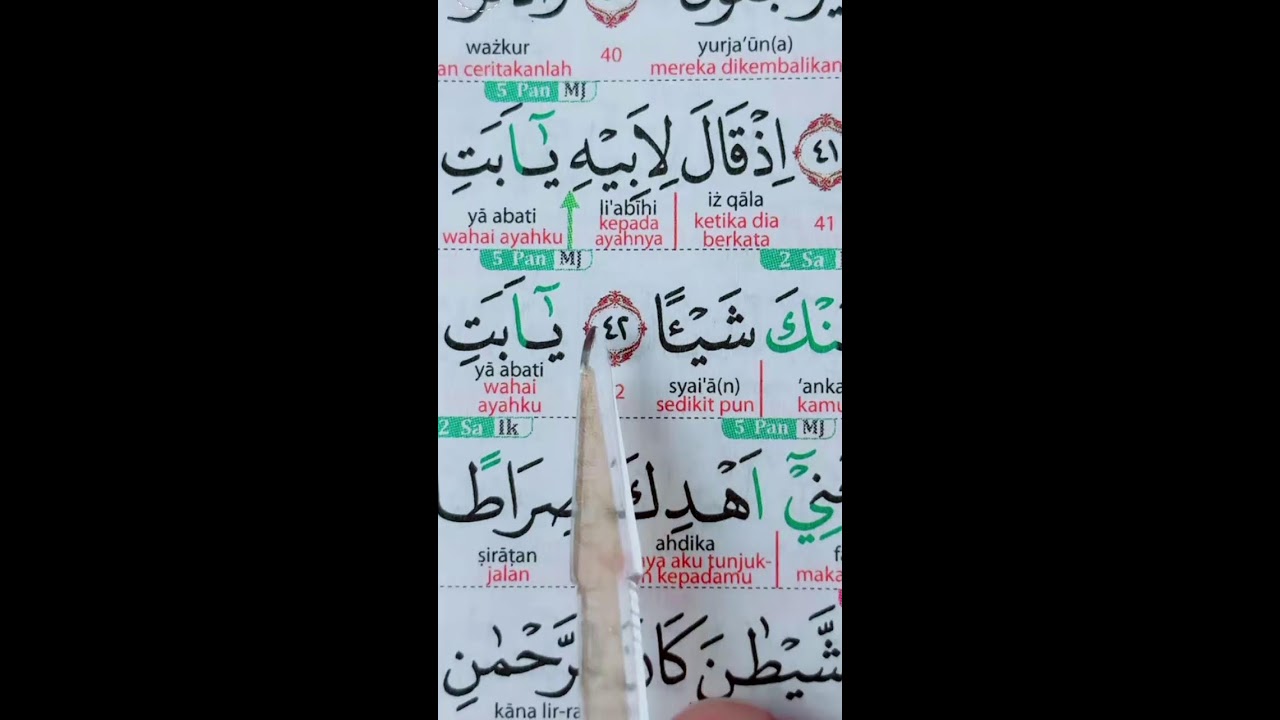 ważkur 40 yurja’ūn(a)
an ceritakanlah mereka dikembalikan
5 Pan MJ
٤١ اِذْ قَالَ لِاَبِيْهِ يٰٓاَبَتِ
yā abati li'abīhi iż qāla
wahai ayahku kepada ayahnya ketika dia berkata 41
5 Pan MJ 2 Sa
نْكَ شَيْـًٔا ٤٢ يٰٓاَبَتِ
yā abati syai'ā(n) ‘anka
wahai ayahku 2 sedikit pun kamu
2 Sa Ik 5 Pan MJ
نِيْٓ اَهْدِكَ صِرَاطًا
ṣirāṭan ahdika
jalan ya aku tunjuk- kepadamu maka
شَّيْطٰنَ كَانَ رَّحْمٰنِ
kāna lir-ra